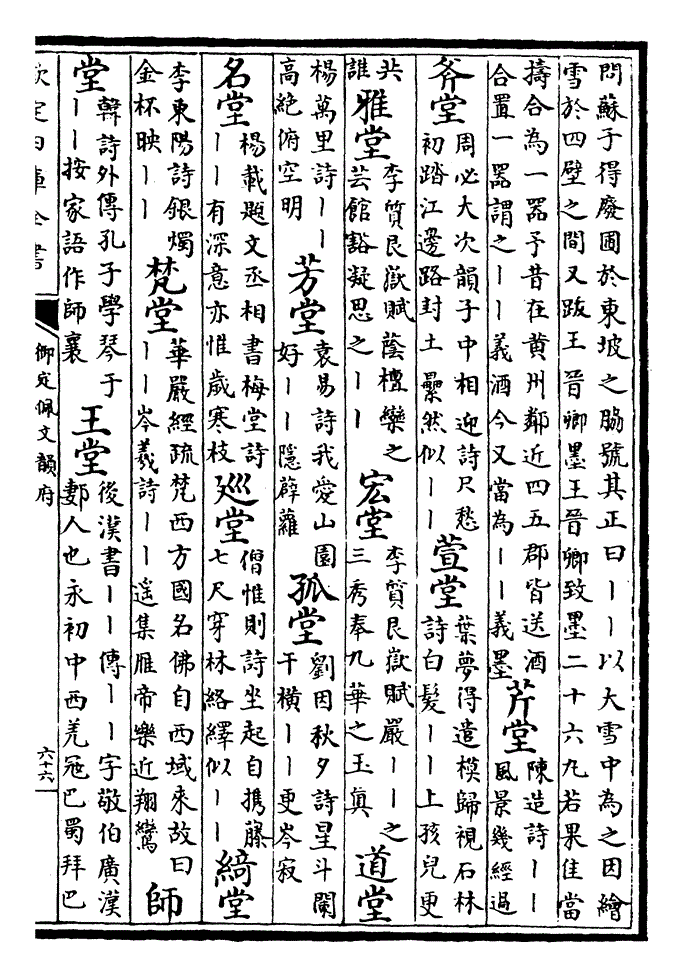 問蘇子得廢圃於東坡之脇號其正曰丨丨以大雪中為之因繪
雪於四壁之間又跋王晉卿墨王晉卿致墨二十六丸若果佳當
擣合為一器予昔在黄州鄰近四五郡皆送酒
合置一器謂之丨丨義酒今又當為丨丨義墨
芹堂
陳造詩丨丨
風景幾經過
斧堂
周必大次韻子中相迎詩尺愁
初踏江邊路封土纍然似丨丨
萱堂
葉夢得遣模歸視石林
詩白髮丨丨上孩兒更
共
誰
雅堂
李質艮嶽賦蔭檀欒之
芸館豁凝思之丨丨
宏堂
李質艮嶽賦嚴丨丨之
三秀奉九華之玉真
道堂
楊萬里詩丨丨
高絶俯空明
芳堂
袁易詩我愛山園
好丨丨隱薜蘿
孤堂
劉因秋夕詩星斗闌
干横丨丨更岑寂
名堂
楊載題文丞相書梅堂詩
丨丨有深意亦惟歲寒枝
巡堂
僧惟則詩坐起自攜藤
七尺穿林絡繹似丨丨
綺堂
李東陽詩銀燭
金杯映丨丨
梵堂
華嚴經疏梵西方國名佛自西域來故曰
丨丨岑羲詩丨丨遥集雁帝樂近翔鸞
師
堂
韓詩外傳孔子學琴于
丨丨按家語作師襄
王堂
後漢書丨丨傳丨丨字敬伯廣漢
鄭人也永初中西羌冦巴蜀拜巴
欽定四庫全書
御定佩文韻府
六十六